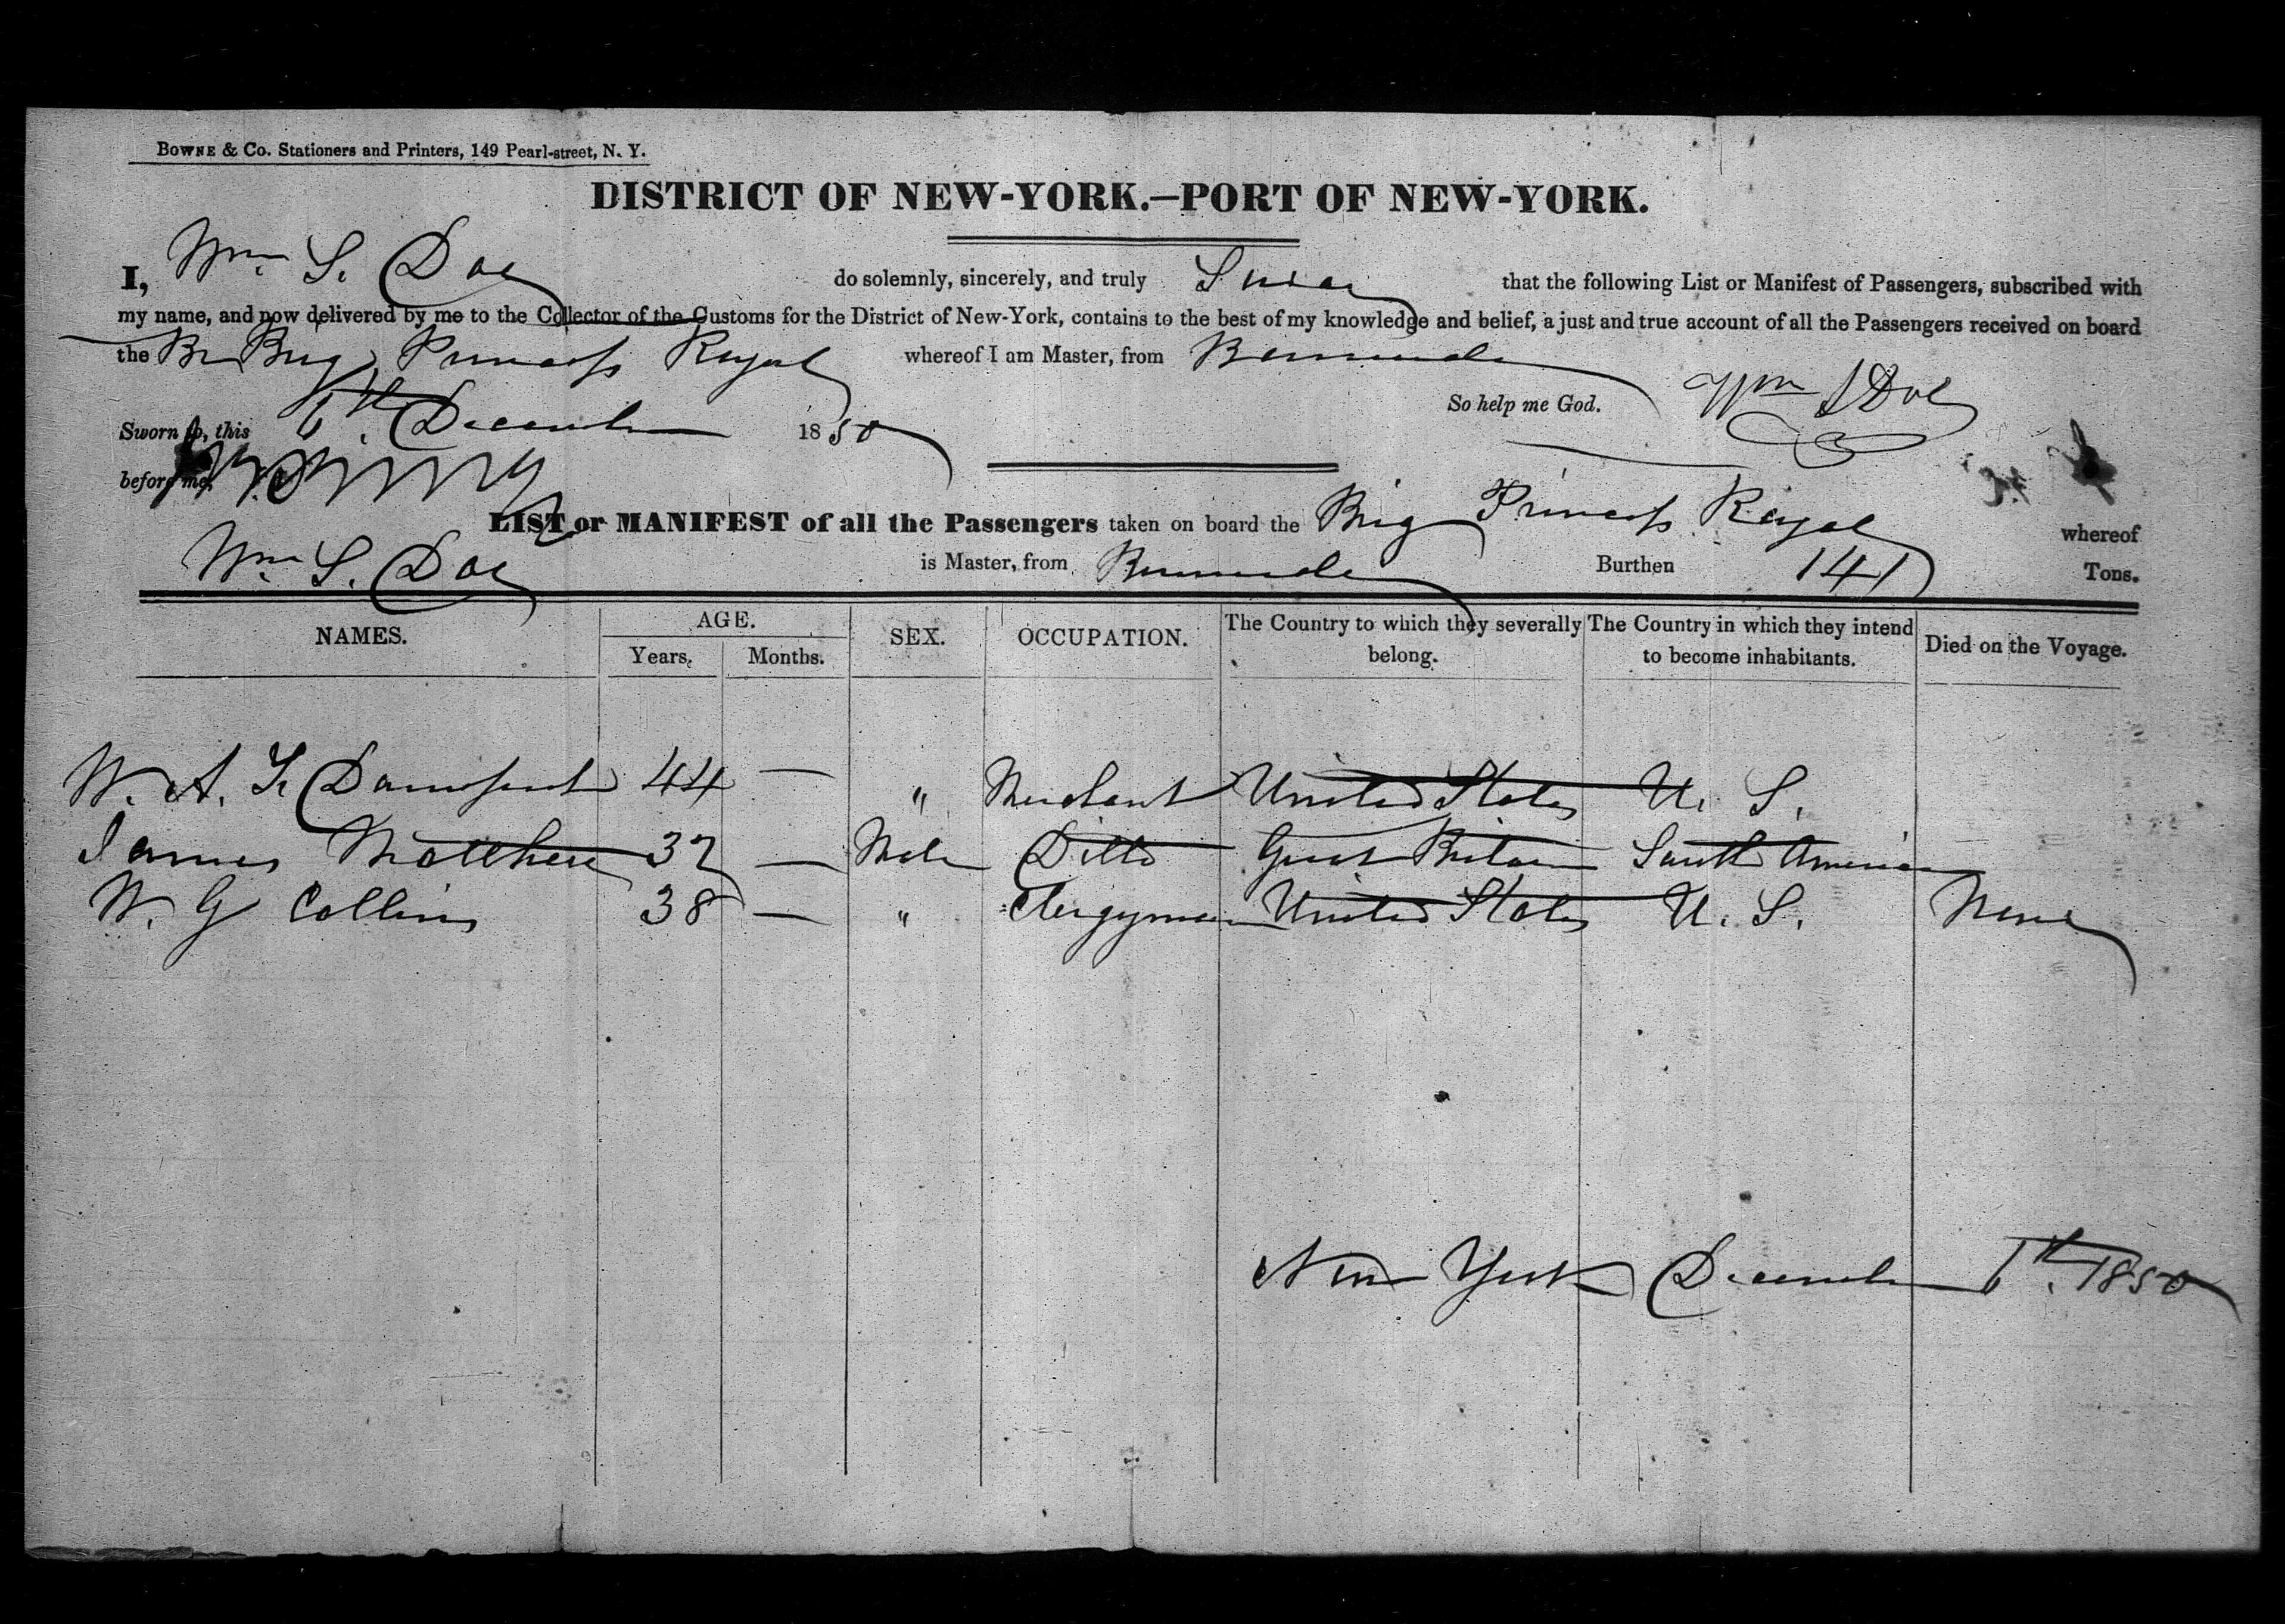 BOWNE & CO. Stationers and Printers, 149 Pearl-street, N. Y.
DISTRICT OF NEW-YORK.—PORT OF NEW-YORK.
I, Wm. S. Doe do solemnly, sincerely, and truly Swear that the following List or Manifest of Passengers, subscribed with
my name, and now delivered by me to the Collector of the Customs for the District of New-York, contains to the best of my knowledge and belief, a just and true account of all the Passengers received on board
the Br Brig Princess Royal whereof I am Master, from Bermuda
So help me God. Wm S Doe
Sworn to, this 6th. December 1850
before me,
LIST or MANIFEST of all the Passengers taken on board the Brig Princess Royal whereof
Wm. S. Doe is Master, from Bermuda Burthen 141 Tons.
NAMES. AGE. Years. Months. SEX. OCCUPATION. The Country to which they severally belong. The Country in which they intend to become inhabitants. Died on the Voyage.
W. A. 44 — " Merchant United States U. S.
James Matthew 32 — Male Ditto Great Britain South America
W. G Collins 38 — " Clergyman United States U. S. None
New York December 6th. 1850